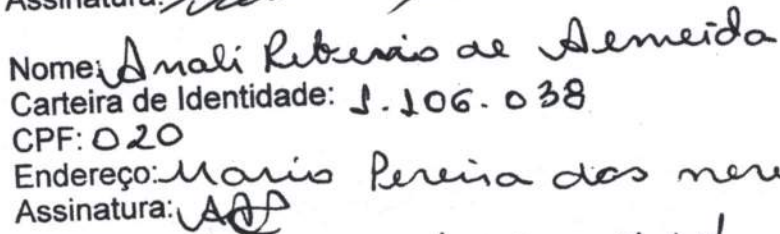 Assinatura:
Nome: Anali Ribeiro de Almeida
Carteira de Identidade: 1.106.038
CPF: 020
Endereço: Mario Pereira das
Assinatura: